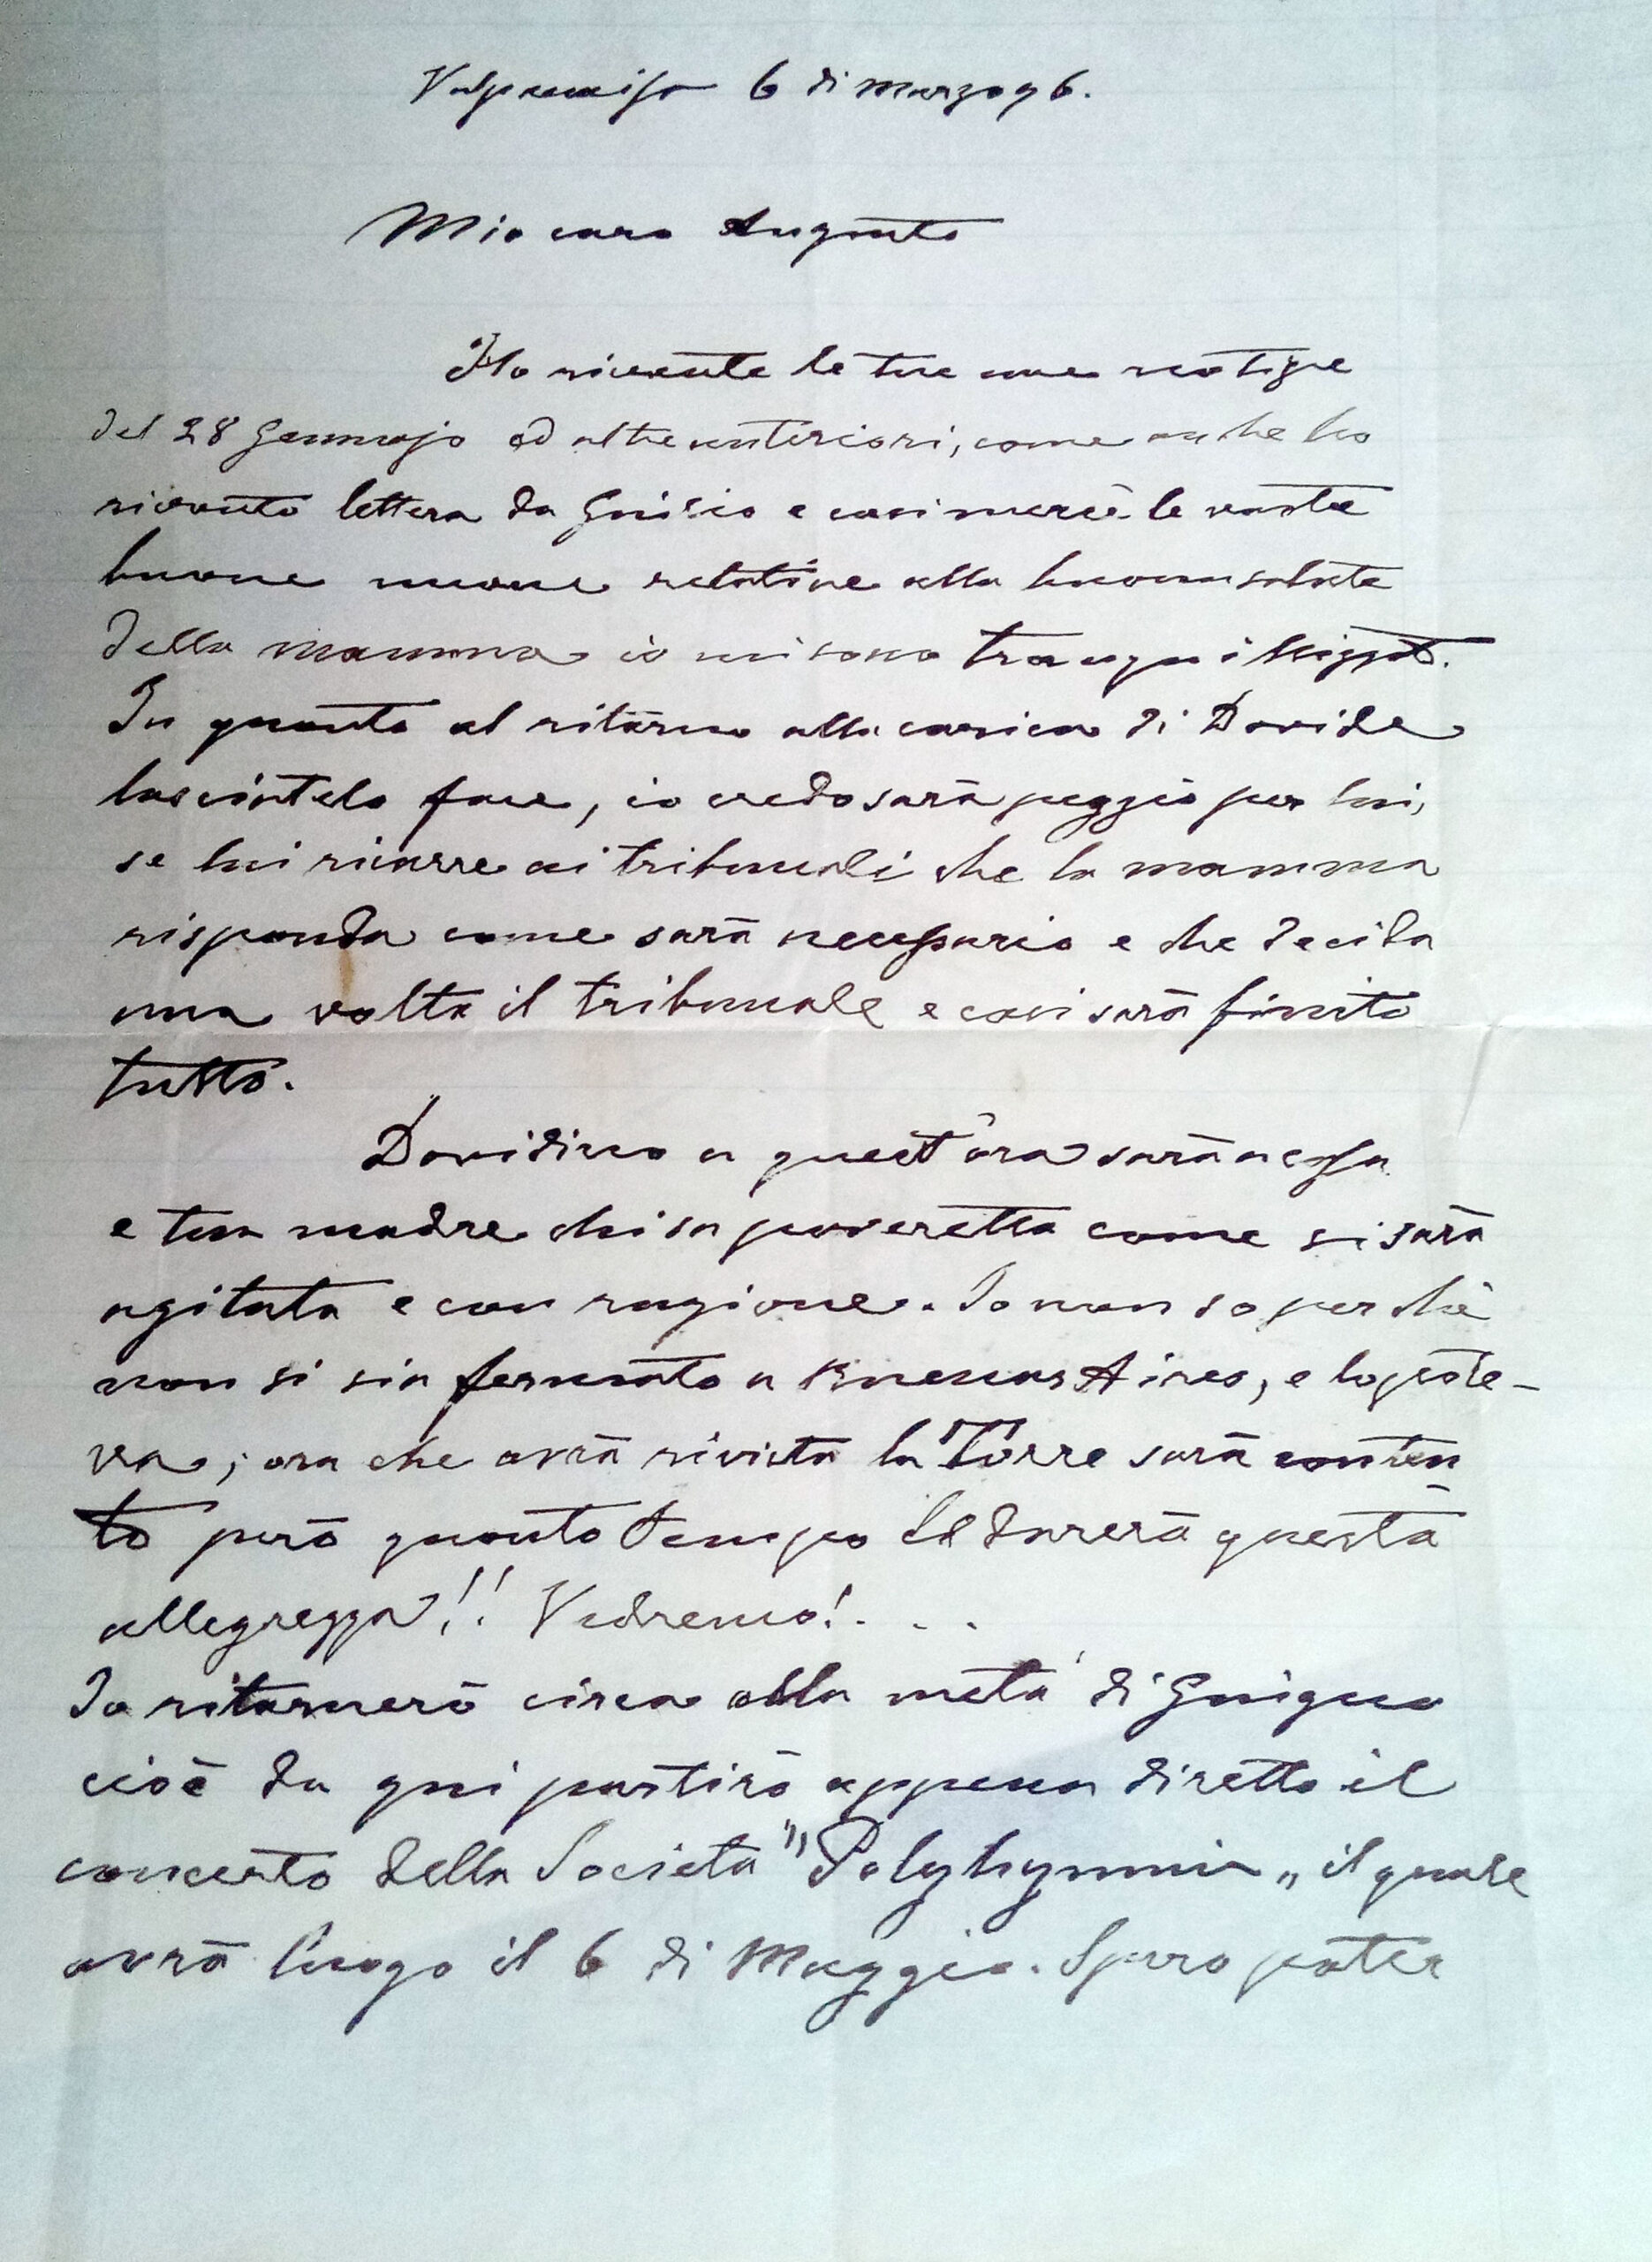 Valparaiso 6 di Marzo 96.
Mio caro Augusto
Ho ricevute le tue care notizie
del 28 Gennajo ed altre anteriori, come anche ho
ricevuto lettera da Giulio e così mercè le vostre
buone nuove relative alla buona salute
della mamma io mi sono tranquillizzato.
In quanto al ritorno alla carica di Davide
lasciatelo fare, io credo sarà peggio per lui,
se lui ricorre ai tribunali che la mamma
risponda come sarà necessario e che decida
una volta il tribunale e così sarà finito
tutto.
Davidino a quest'ora sarà a casa
e tua madre chi sa poveretta come si sarà
agitata e con ragione. Io non so perchè
non si sia fermato a Buenos Aires, e lo pote-
va; ora che avrà rivista la Torre sarà conten
to però quanto tempo durerà questa
allegrezza!! Vedremo!...
Io ritornerò circa alla metà di Giugno
cioè da qui partirò appena diretto il
concerto della Società "Polyhymnia„ il quale
avrà luogo il 6 di Maggio. Spero poter